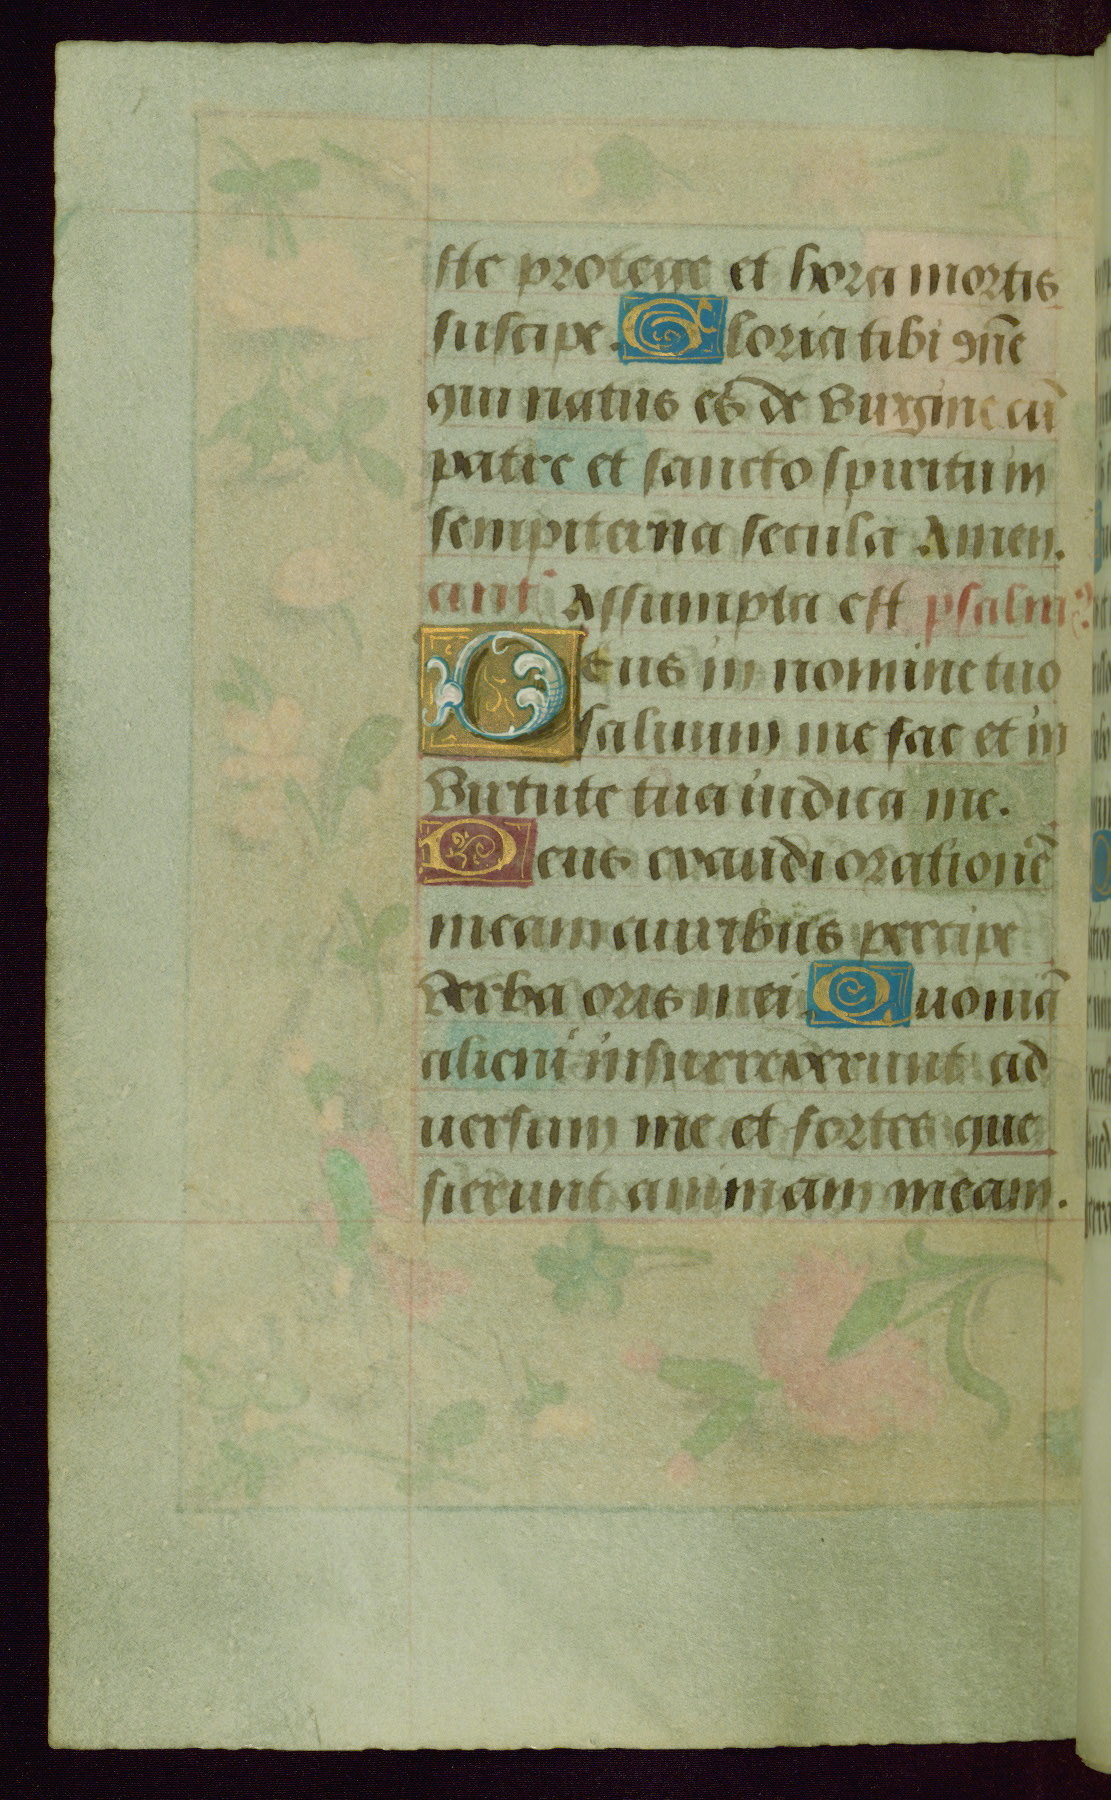 ste protege et hora mortis
suscipe. Gloria tibi dñe
qui natus es de virgine cū
patre et sancto spiritu in
sempiterna secula Amen.
ant Assumpta est psalm
Deus in nomine tuo
saluum me fac et in
virtute tua iudica me.
Deus exaudi orationē
meam auribus percipe
verba oris mei. Quoniā
alieni insurrexerunt ad
uersum me et fortes que
sierunt animam meam.